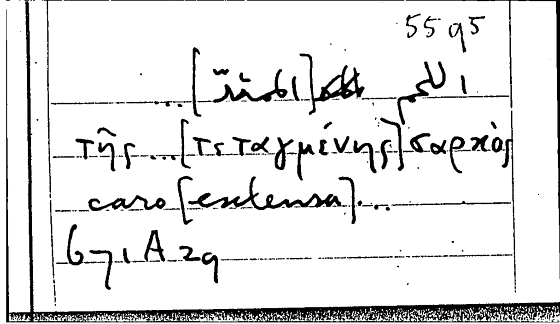 55 95
اللحم [الممتدّ] ...
τῆς ... [τεταγμένης] σαρκὸς
caro [extensa] ...
671 A 29